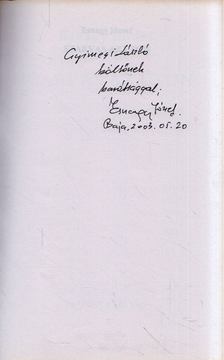 Gyimesi László
költőnek
barátsággal:
Esnagy József
Baja, 2003. 05. 20